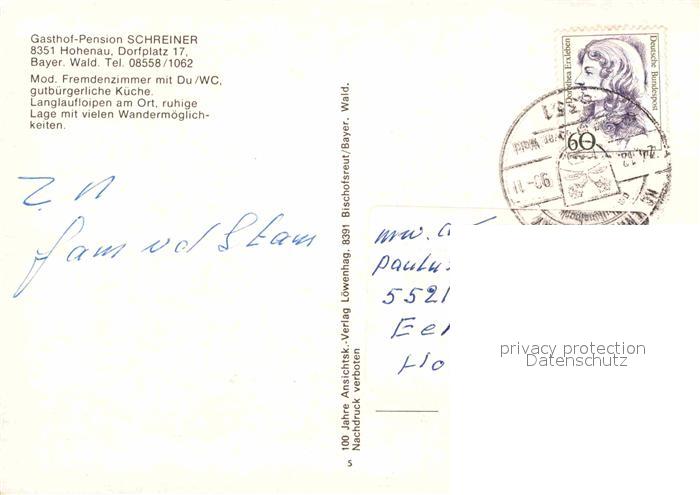 Gasthof-Pension SCHREINER
8351 Hohenau, Dorfplatz 17,
Bayer. Wald. Tel. 08558/1062
Mod. Fremdenzimmer mit Du/WC,
gutbürgerliche Küche.
Langlaufloipen am Ort, ruhige
Lage mit vielen Wandermöglich-
keiten.
fam vd Stam
100 Jahre Ansichtsk.-Verlag Löwenhag, 8391 Bischofsreut/Bayer. Wald.
Nachdruck verboten
5
Dorothea Erxleben
Deutsche Bundespost
60
8351
mw.
5521
Eer
Ho
privacy protection
Datenschutz